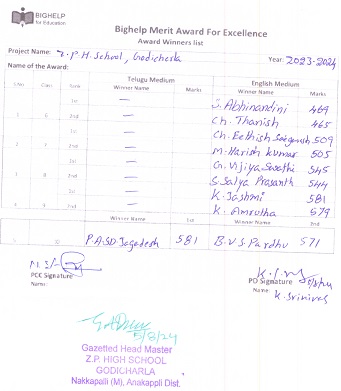 BIGHELP
for Education
Bighelp Merit Award For Excellence
Award Winners list
Project Name: Z.P.H. School, Godicherla Year: 2023-2024
Name of the Award:
Telugu Medium English Medium
S No Class Rank Winner Name Marks Winner Name Marks
1st — S. Abhinandini 469
1 6 2nd — Ch. Thanish 465
1st — Ch. Eethish Saiganesh 509
2 7 2nd — M. Harish Kumar 505
1st — G. Vijiya Swathi 545
3 8 2nd — S. Satya Prasanth 544
1st — K. Jashmi 581
4 9 2nd — K. Amrutha 579
Winner Name 1st Winner Name 2nd
5 10 P.A.S.D Jagadesh 581 B.V.S. Pardhu 571
PCC Signature: PD Signature
Name: Name: K. Srinivas
5/8/24
Gazetted Head Master
Z.P. HIGH SCHOOL
GODICHARLA
Nakkapalli (M), Anakappli Dist.